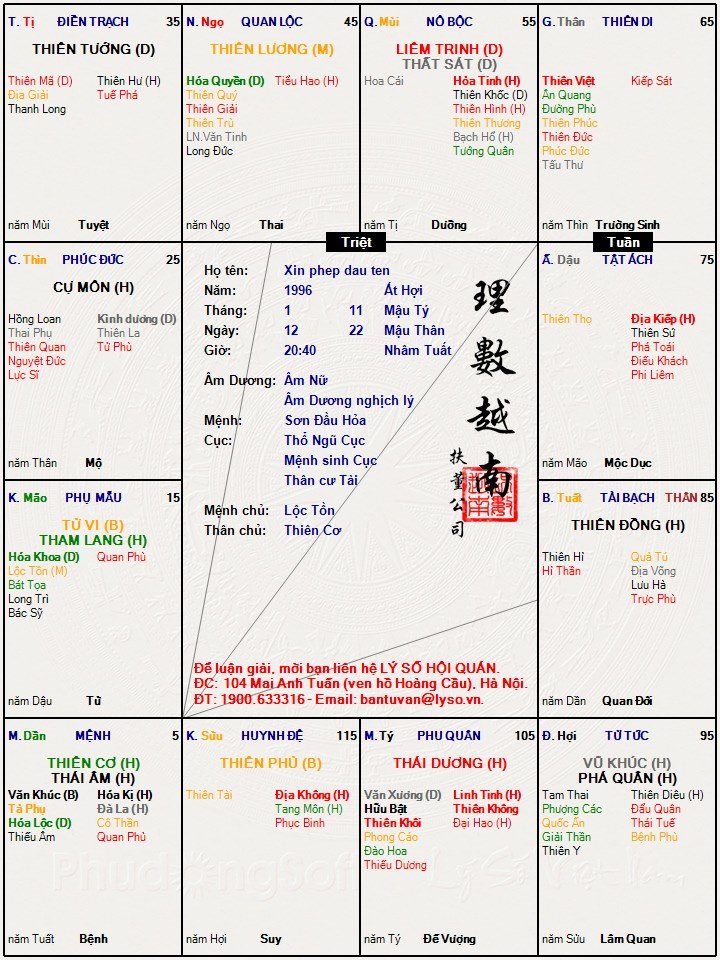 T. Tị ĐIỀN TRẠCH 35
THIÊN TƯỚNG (D)
Thiên Mã (D) Thiên Hư (H)
Địa Giải Tuế Phá
Thanh Long
năm Mùi Tuyệt
N. Ngọ QUAN LỘC 45
THIÊN LƯƠNG (M)
Hóa Quyền (D) Tiểu Hao (H)
Thiên Quý
Thiên Giải
Thiên Trù
LN.Văn Tinh
Long Đức
năm Ngọ Thai
Q. Mùi NÔ BỘC 55
LIÊM TRINH (D)
THẤT SÁT (D)
Hoa Cái Hỏa Tinh (H)
Thiên Khốc (D)
Thiên Hình (H)
Thiên Thương
Bạch Hổ (H)
Tướng Quân
năm Tị Dưỡng
G. Thân THIÊN DI 65
Thiên Việt Kiếp Sát
Ân Quang
Đường Phù
Thiên Phúc
Thiên Đức
Phúc Đức
Tấu Thư
năm Thìn Trường Sinh
Triệt
Tuần
C. Thìn PHÚC ĐỨC 25
CỰ MÔN (H)
Hồng Loan Kình dương (D)
Thai Phụ Thiên La
Thiên Quan Tử Phù
Nguyệt Đức
Lực Sĩ
năm Thân Mộ
Họ tên: Xin phep dau ten
Năm: 1996 Ất Hợi
Tháng: 1 11 Mậu Tý
Ngày: 12 22 Mậu Thân
Giờ: 20:40 Nhâm Tuất
Âm Dương: Âm Nữ
Âm Dương nghịch lý
Mệnh: Sơn Đầu Hỏa
Cục: Thổ Ngũ Cục
Mệnh sinh Cục
Thân cư Tài
Mệnh chủ: Lộc Tồn
Thân chủ: Thiên Cơ
理數越南
扶董公司
Để luận giải, mời bạn liên hệ LÝ SỐ HỘI QUÁN.
ĐC: 104 Mai Anh Tuấn (ven hồ Hoàng Cầu), Hà Nội.
ĐT: 1900.633316 - Email: bantuvan@lyso.vn.
Ấ. Dậu TẬT ÁCH 75
Thiên Thọ Địa Kiếp (H)
Thiên Sứ
Phá Toái
Điếu Khách
Phi Liêm
năm Mão Mộc Dục
K. Mão PHỤ MẪU 15
TỬ VI (B)
THAM LANG (H)
Hóa Khoa (D) Quan Phù
Lộc Tồn (M)
Bát Tọa
Long Trì
Bác Sỹ
năm Dậu Tử
B. Tuất TÀI BẠCH THÂN 85
THIÊN ĐỒNG (H)
Thiên Hỉ Quả Tú
Hỉ Thần Địa Võng
Lưu Hà
Trực Phù
năm Dần Quan Đới
M. Dần MỆNH 5
THIÊN CƠ (H)
THÁI ÂM (H)
Văn Khúc (B) Hóa Kị (H)
Tả Phụ Đà La (H)
Hóa Lộc (D) Cô Thần
Thiếu Âm Quan Phủ
năm Tuất Bệnh
K. Sửu HUYNH ĐỆ 115
THIÊN PHỦ (B)
Thiên Tài Địa Không (H)
Tang Môn (H)
Phục Binh
năm Hợi Suy
M. Tý PHU QUÂN 105
THÁI DƯƠNG (H)
Văn Xương (D) Linh Tinh (H)
Hữu Bật Thiên Không
Thiên Khôi Đại Hao (H)
Phong Cáo
Đào Hoa
Thiếu Dương
năm Tý Đế Vượng
Đ. Hợi TỬ TỨC 95
VŨ KHÚC (H)
PHÁ QUÂN (H)
Tam Thai Thiên Diêu (H)
Phượng Các Đẩu Quân
Quốc Ấn Thái Tuế
Giải Thần Bệnh Phù
Thiên Y
năm Sửu Lâm Quan